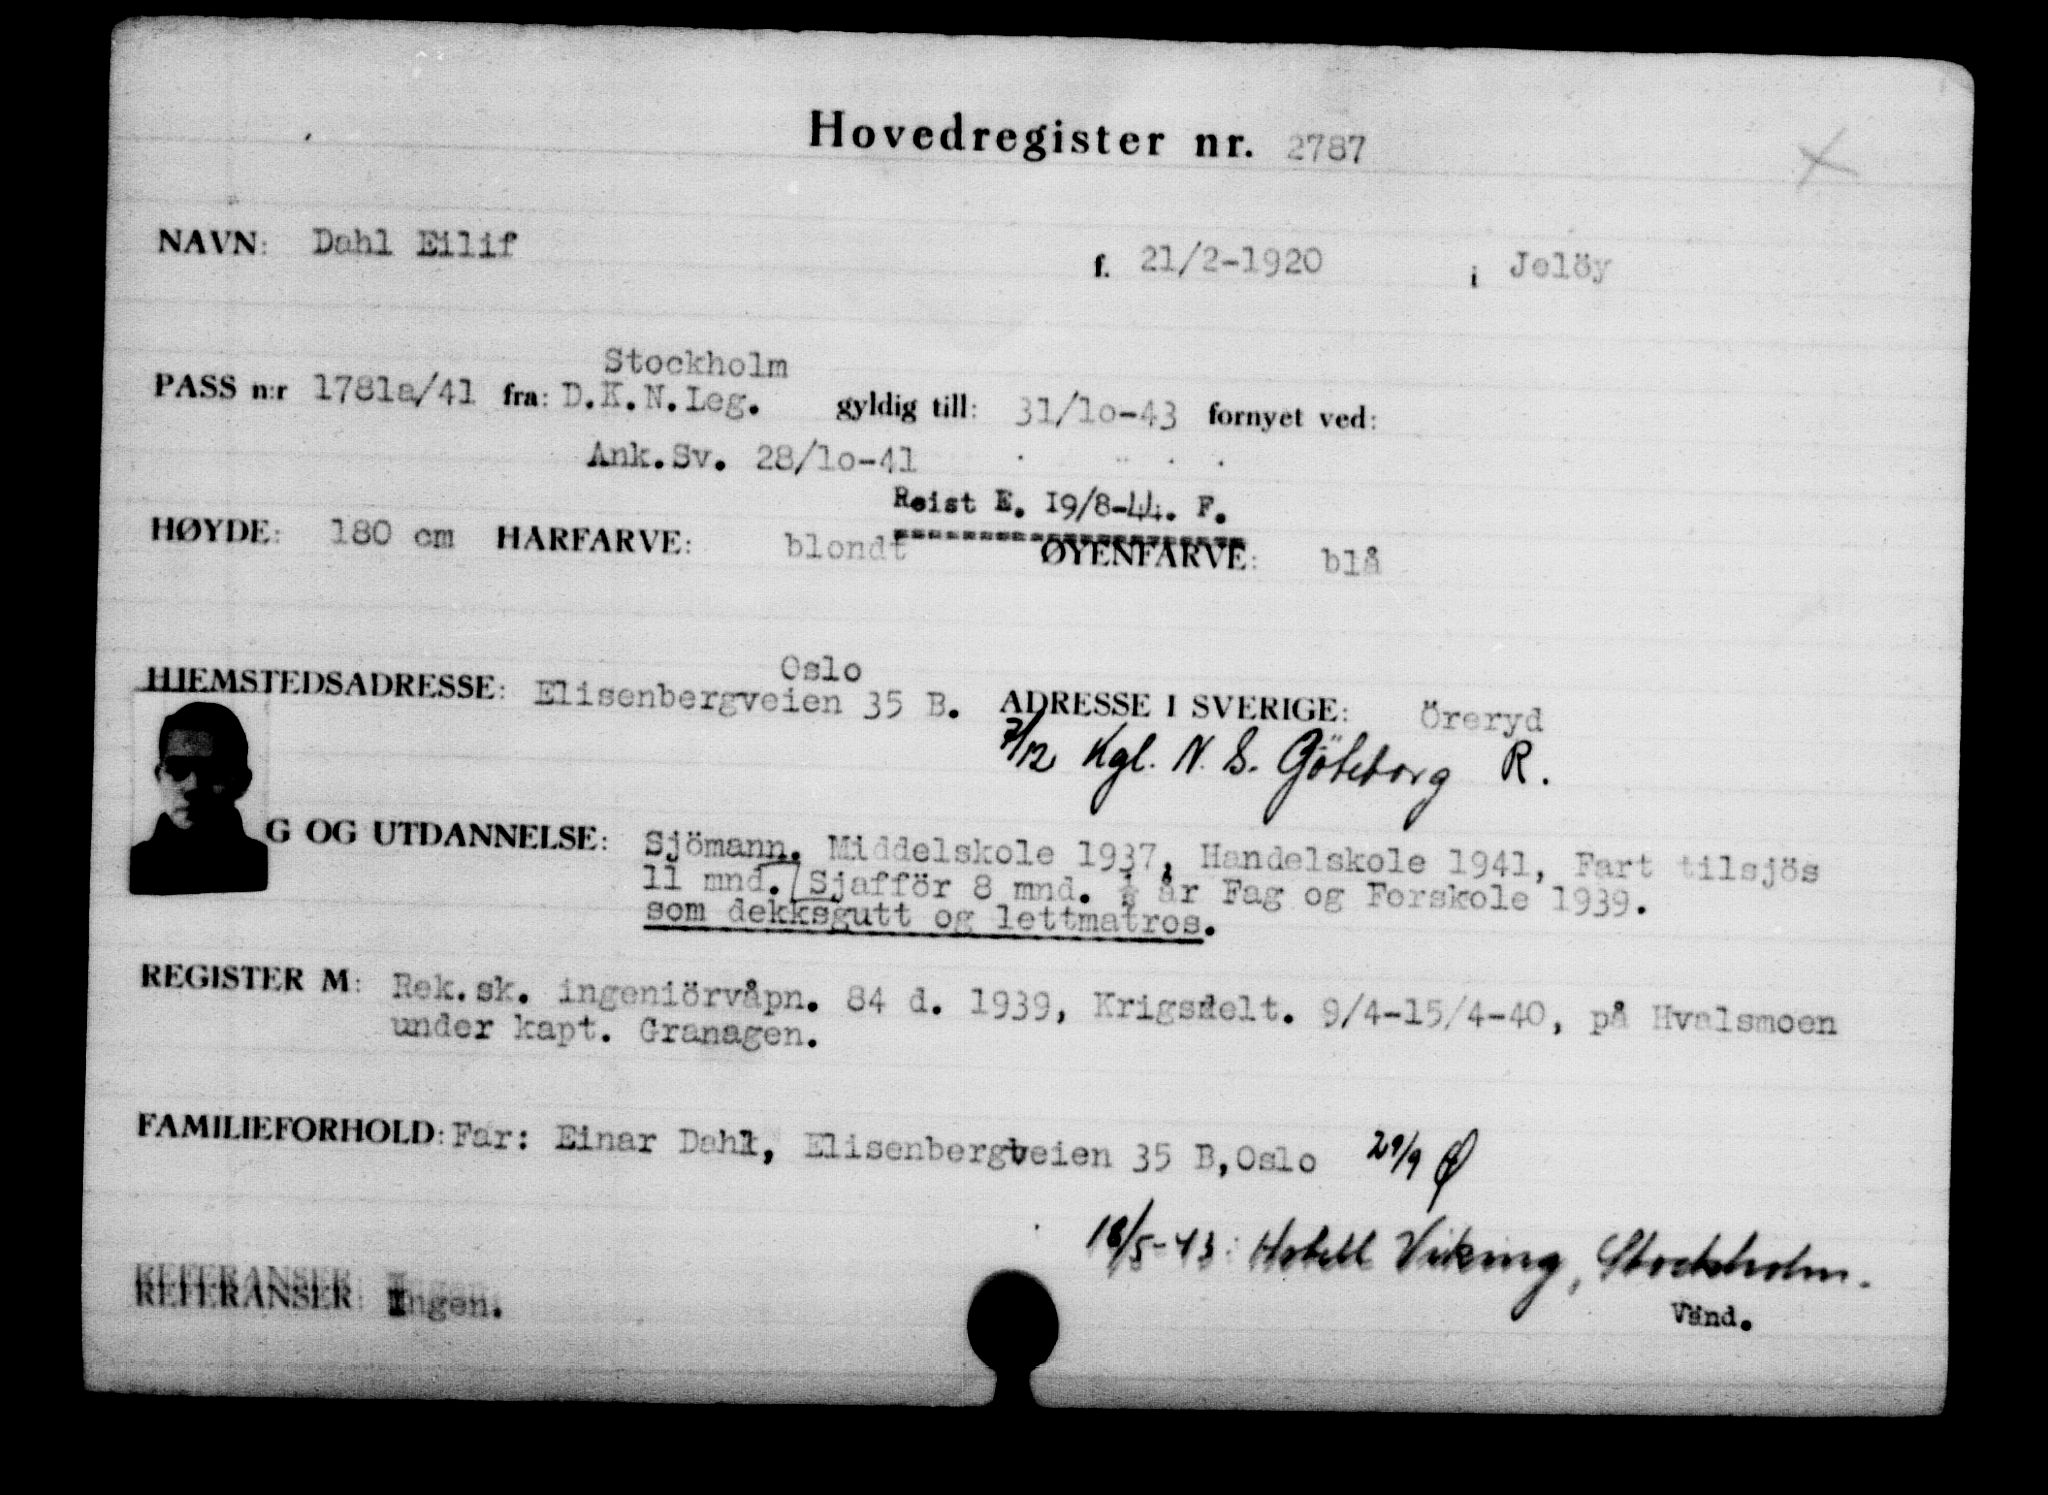 Hovedregister nr. 2787
NAVN: Dahl Eilif f. 21/2-1920 i Jelöy
Stockholm
PASS n:r 1781a/41 fra: D.K.N.Leg. gyldig till: 31/1o-43 fornyet ved:
Ank.Sv. 28/1o-41
Reist E. 19/8-44. F.
HØYDE: 180 cm HARFARVE: blondt ØYENFARVE: blå
Oslo
HJEMSTEDSADRESSE: Elisenbergveien 35 B. ADRESSE I SVERIGE: Öreryd
7/12 Kgl. N. S. Göteborg R.
G OG UTDANNELSE: Sjömann. Middelskole 1937, Handelskole 1941, Fart tilsjös
11 mnd. Sjafför 8 mnd. ½ år Fag og Forskole 1939.
som dekksgutt og lettmatros.
REGISTER M: Rek.sk. ingeniörvåpn. 84 d. 1939, Krigsdelt. 9/4-15/4-40, på Hvalsmoen
under kapt. Granagen.
FAMILIEFORHOLD: Far: Einar Dahl, Elisenbergveien 35 B, Oslo 29/9 Ø
18/5-43: Hotell Viking, Stockholm.
REFERANSER: Ingen.
Vänd.